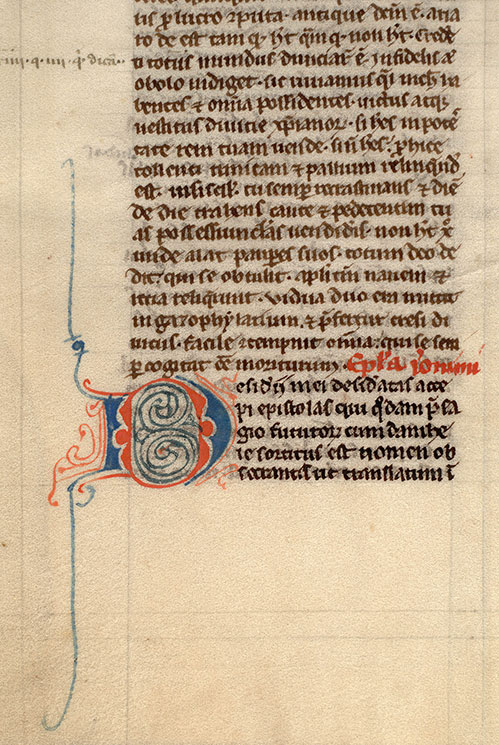 tis p̱ lucro ꝛputa. antique dem̄ ē. aua
ro de est tam qͥ ht̄ qm̄ qͥ nō ht̄. Crede
ti totus mundus diuiciaꝝ ē. infidelis ac̄
obolo indiget. sic uiuamus qͣi nich̄ ha
bentes ⁊ om̄ia possidentes. uictus atqꝫ
uestitus diuitie xp̄ianoꝝ. si hēs in potēs
tate rem tuam uende. sin̄ hēs. p̄hice
tollenti tunicam ⁊ pallium relinqn̄d
est. nisi scilꝫ. tu semper recrastinans ⁊ diē
de die trahens caute ⁊ pedetentim tu
as possessiunclas uendid̓is. non ht̄ xp̄c
unde alat paup̱es suos. totum deo de
dit. qui se obtulit. apl̄i tm̄ nauem ⁊
retia reliqrunt. Vidua duo era mittit
in gazophylatium. ⁊ p̄fertur cresi di
uitiis. facile ꝯtempnit om̄ia. qui se sem
p̱ cogitat ēē moriturum. Ep̄l'a Jeronimi
Desid'ii mei desid'atas acce
pi epistolas qui qͦdam p̄sa
gio futuroꝝ cum danihe
le sortitus est nomen ob
secrantis ut translatum ī